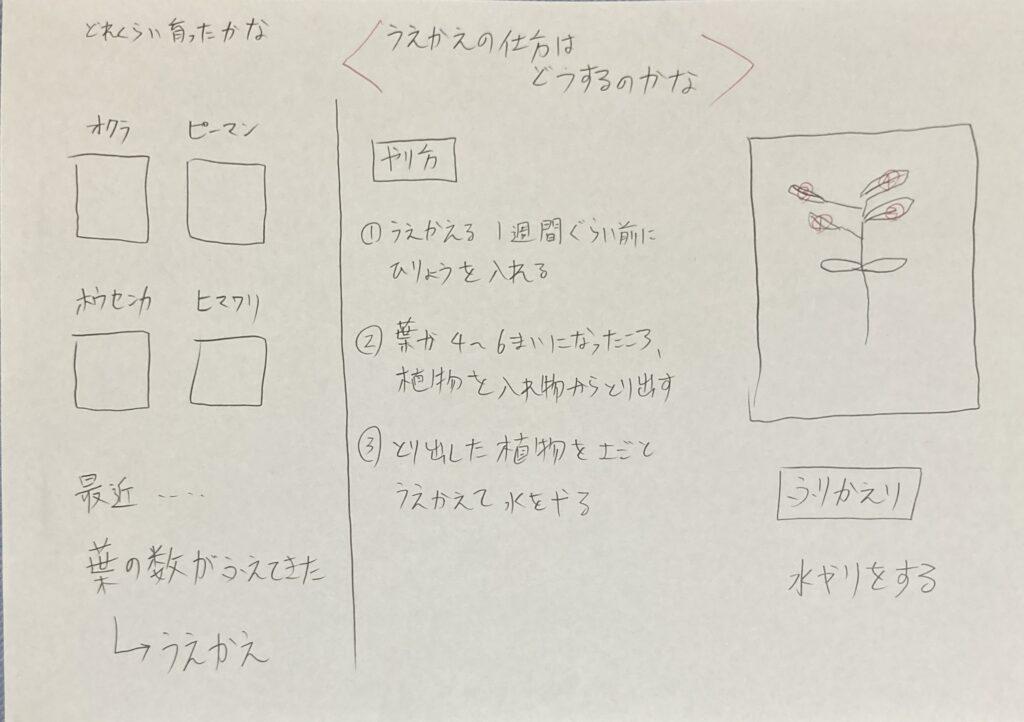 どれくらい育ったかな
うえかえの仕方は
どうするのかな
オクラ
ピーマン
ホウセンカ
ヒマワリ
最近 ‥‥
葉の数がふえてきた
うえかえ
やり方
① うえかえる 1週間ぐらい前に
ひりょうを入れる
② 葉が 4〜6まいになったころ、
植物を入れ物からとり出す
③ とり出した植物を土ごと
うえかえて水をやる
ふりかえり
水やりをする